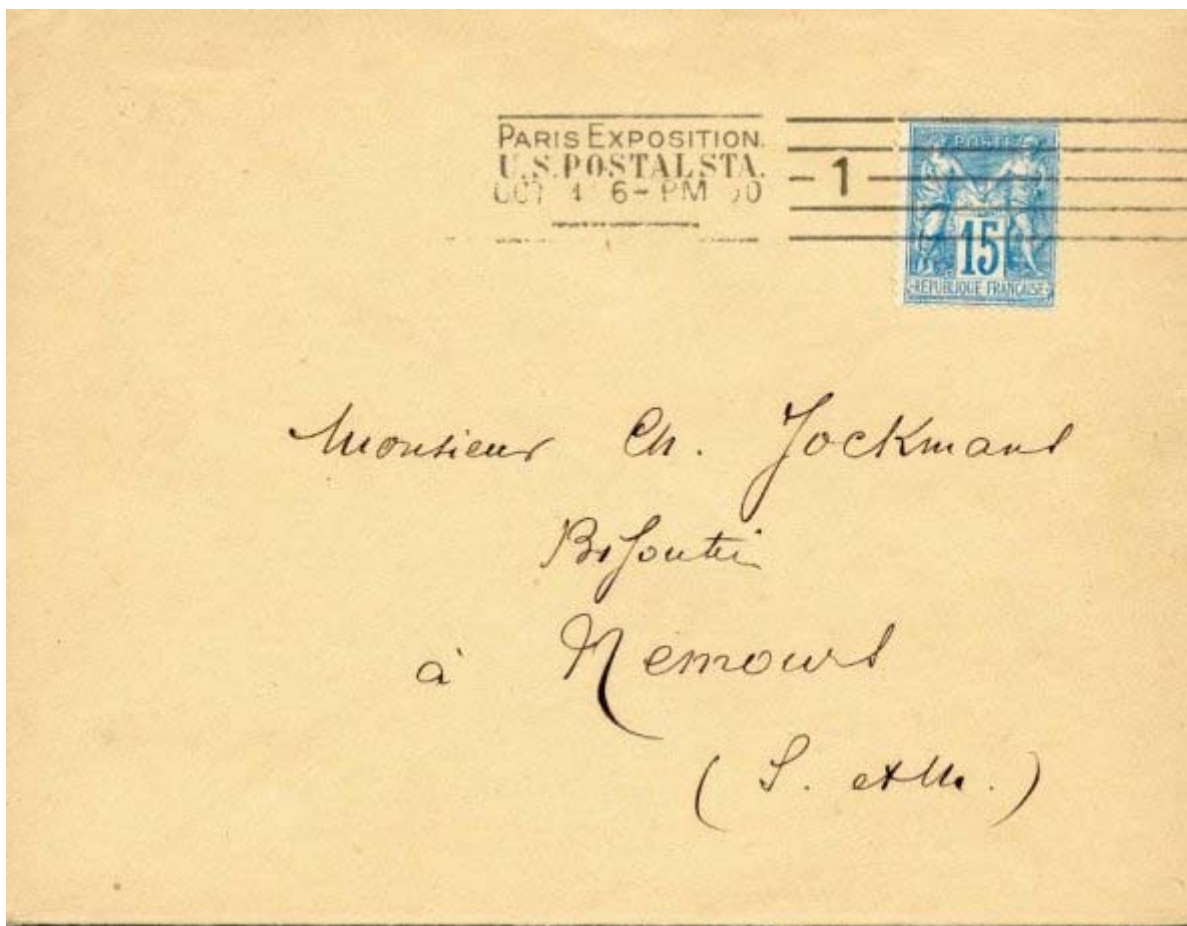 PARIS EXPOSITION.
U.S. POSTAL STA.
OCT 4 6-PM 00
1
POSTE
15
RÉPUBLIQUE FRANÇAISE
Monsieur Ch. Jockmans
Bijoutier
à Nemours
(S. et M.)